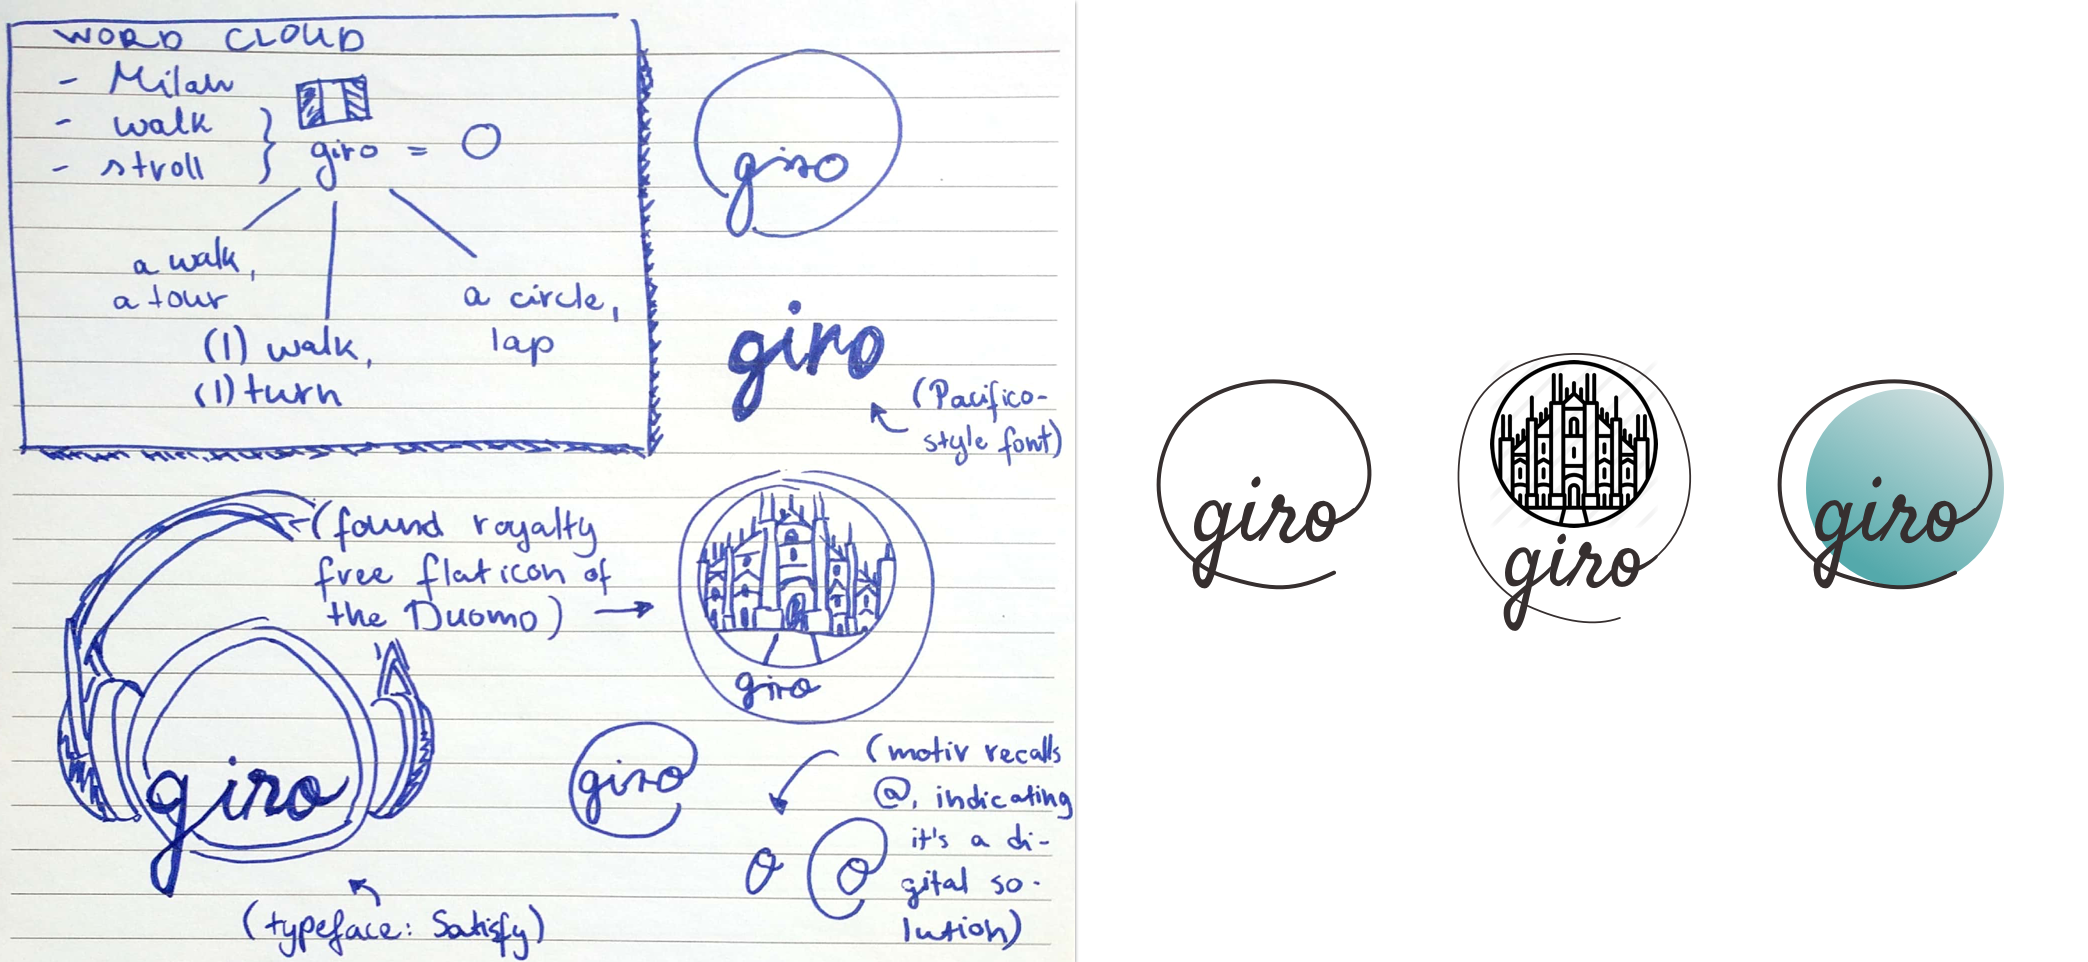 WORD CLOUD
- Milan
- walk
- stroll
giro = O
a walk,
a tour
(1) walk,
(1) turn
a circle,
lap
giro
giro
(Pacifico-
style font)
(found royalty
free flaticon of
the Duomo)
giro
giro
(typeface: Satisfy)
giro
(motiv recalls
@, indicating
it's a di-
gital so-
lution)
o @
giro
giro
giro